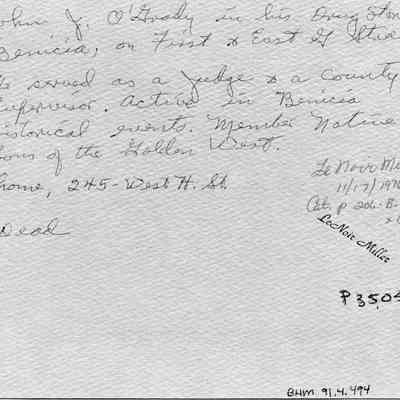 ohn J. O'Grady in his Drug Store
Benicia, on First & East G Stre
e served as a Judge & a County
upervisor. Active in Benicia
istorical events. Member Native
ons of the Golden West.
home, 245-West H. St.
Dead
LeNoir Mi
11/17/19
Cat. p 206-B-
LeNoir Miller
P 350
BHM 91.4.494